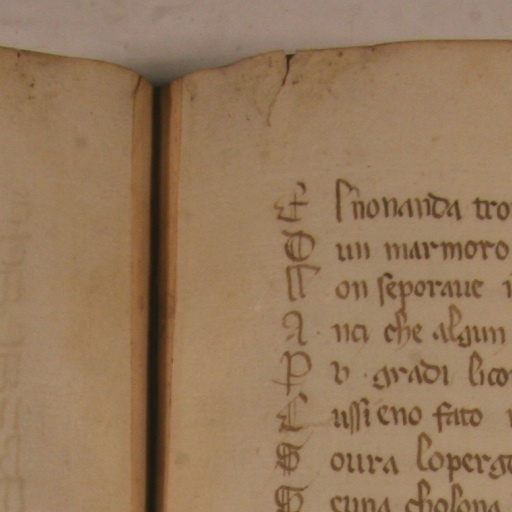 E sñonanda tro
O un marmoro
N on seporaue
A nci che algun
P v gradi lico
E ussi eno fato
S oura loperg
S euna cholona